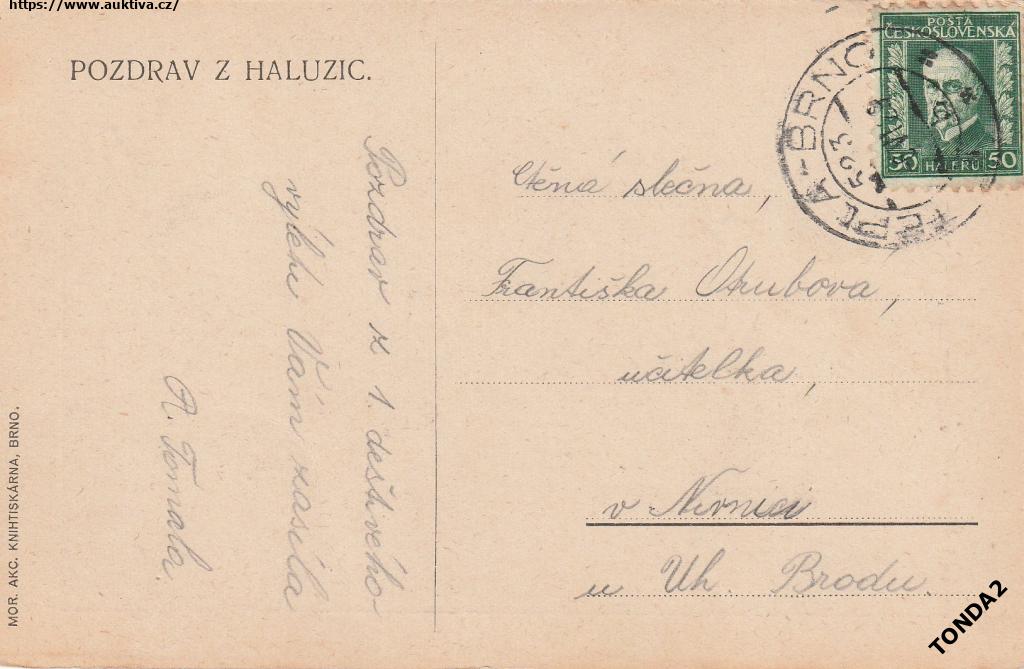 https://www.auktiva.cz/
POZDRAV Z HALUZIC.
POŠTA
ČESKOSLOVENSKÁ
50 HALÉŘŮ 50
TEPLÁ-BRNO
523
Pozdrav z 1. deštivého
výletu Vám zasílá
A. Tomala
Ctěná slečna,
Františka Otrubova,
učitelka,
v Nivnici
u Uh. Brodu.
MOR. AKC. KNIHTISKÁRNA, BRNO.
TONDA2